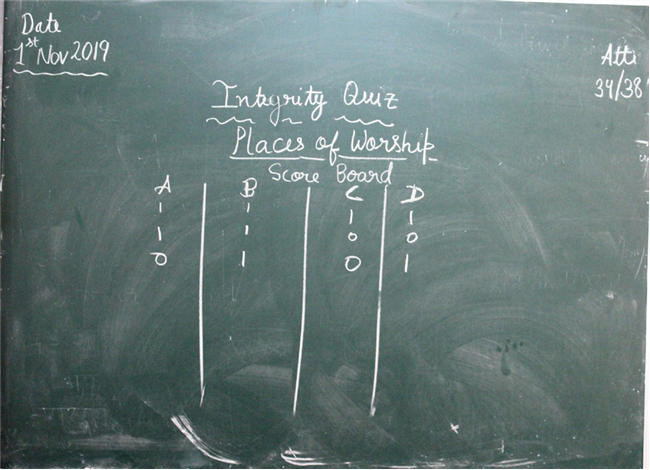 Date
1st Nov 2019
Atti
34/38
Integrity Quiz
Places of Worship
Score Board
A B C D
1 1 1 1
1 1 0 0
0 1 0 1